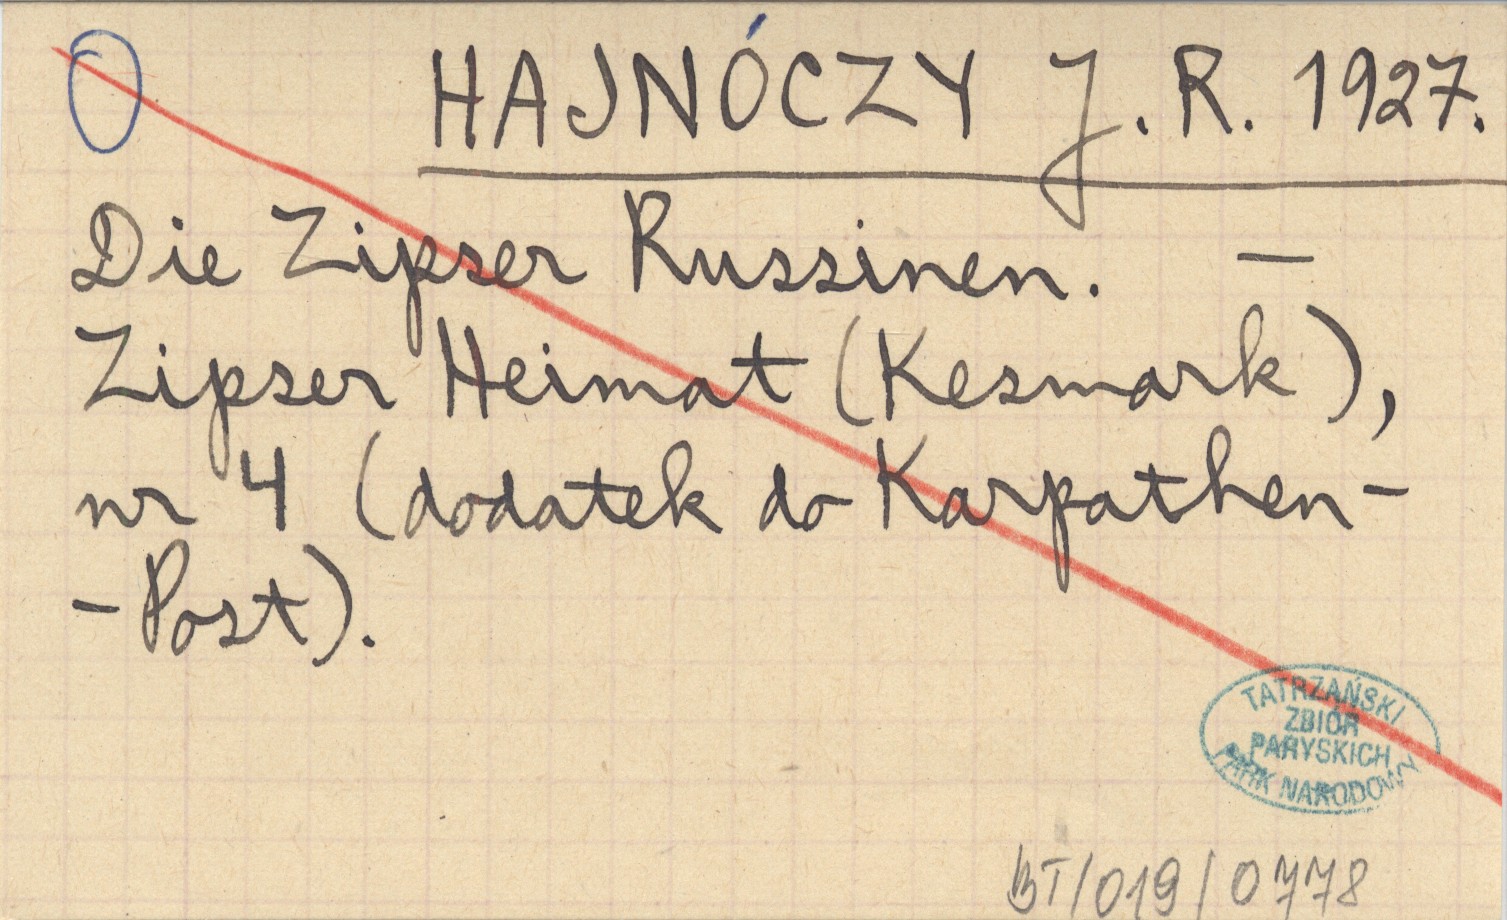 HAJNÓCZY J. R. 1927.
Die Zipser Russinen. —
Zipser Heimat (Kesmark),
nr 4 (dodatek do Karpathen-
-Post).
TATRZAŃSKI
ZBIÓR
PARYSKICH
PARK NARODOWY
BT/019/0778